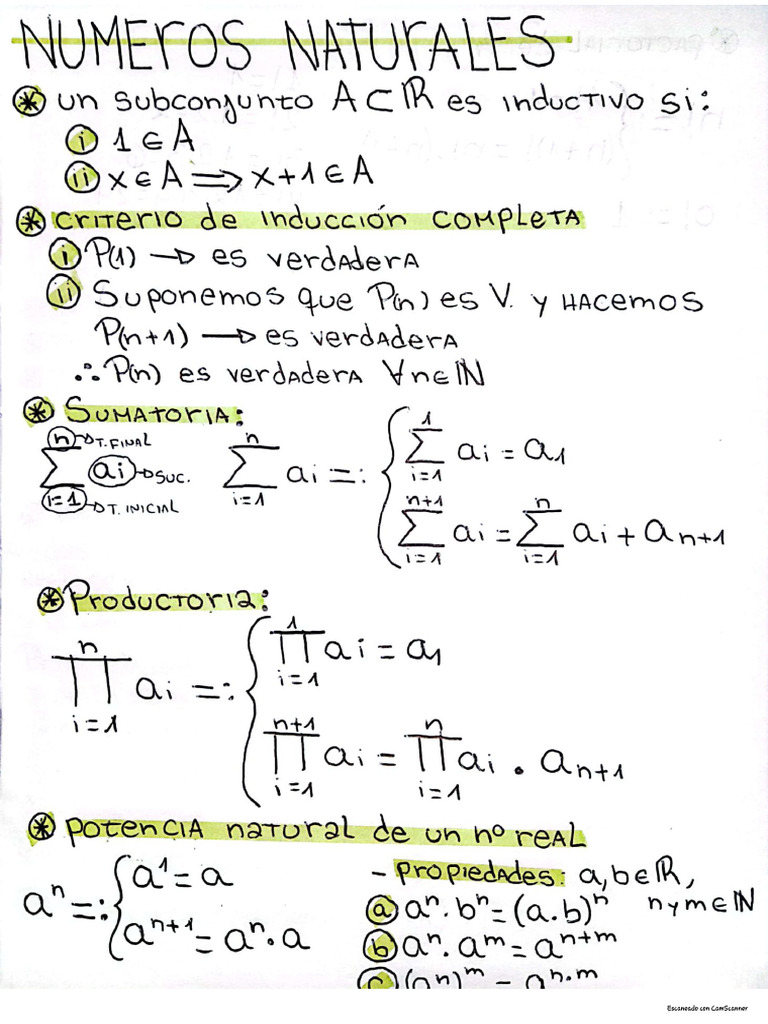 NUMEROS NATURALES
* un subconjunto A⊂ℝ es inductivo si:
i 1∈A
ii x∈A ⟹ x+1∈A
* criterio de inducción completa
i P(1) → es verdadera
ii Suponemos que P(n) es V. y hacemos
P(n+1) → es verdadera
∴ P(n) es verdadera ∀n∈ℕ
* Sumatoria:
n → T. FINAL
∑ ai → SUC.
i=1 → T. INICIAL
∑_{i=1}^{n} ai =: { ∑_{i=1}^{1} ai = a1
∑_{i=1}^{n+1} ai = ∑_{i=1}^{n} ai + a_{n+1}
* Productoria:
∏_{i=1}^{n} ai =: { ∏_{i=1}^{1} ai = a1
∏_{i=1}^{n+1} ai = ∏_{i=1}^{n} ai . a_{n+1}
* potencia natural de un nº real
a^n =: { a^1 = a
a^{n+1} = a^n · a
- propiedades: a,b∈ℝ,
n y m∈ℕ
a a^n · b^n = (a.b)^n
b a^n · a^m = a^{n+m}
c (a^n)^m = a^{n·m}
Escaneado con CamScanner